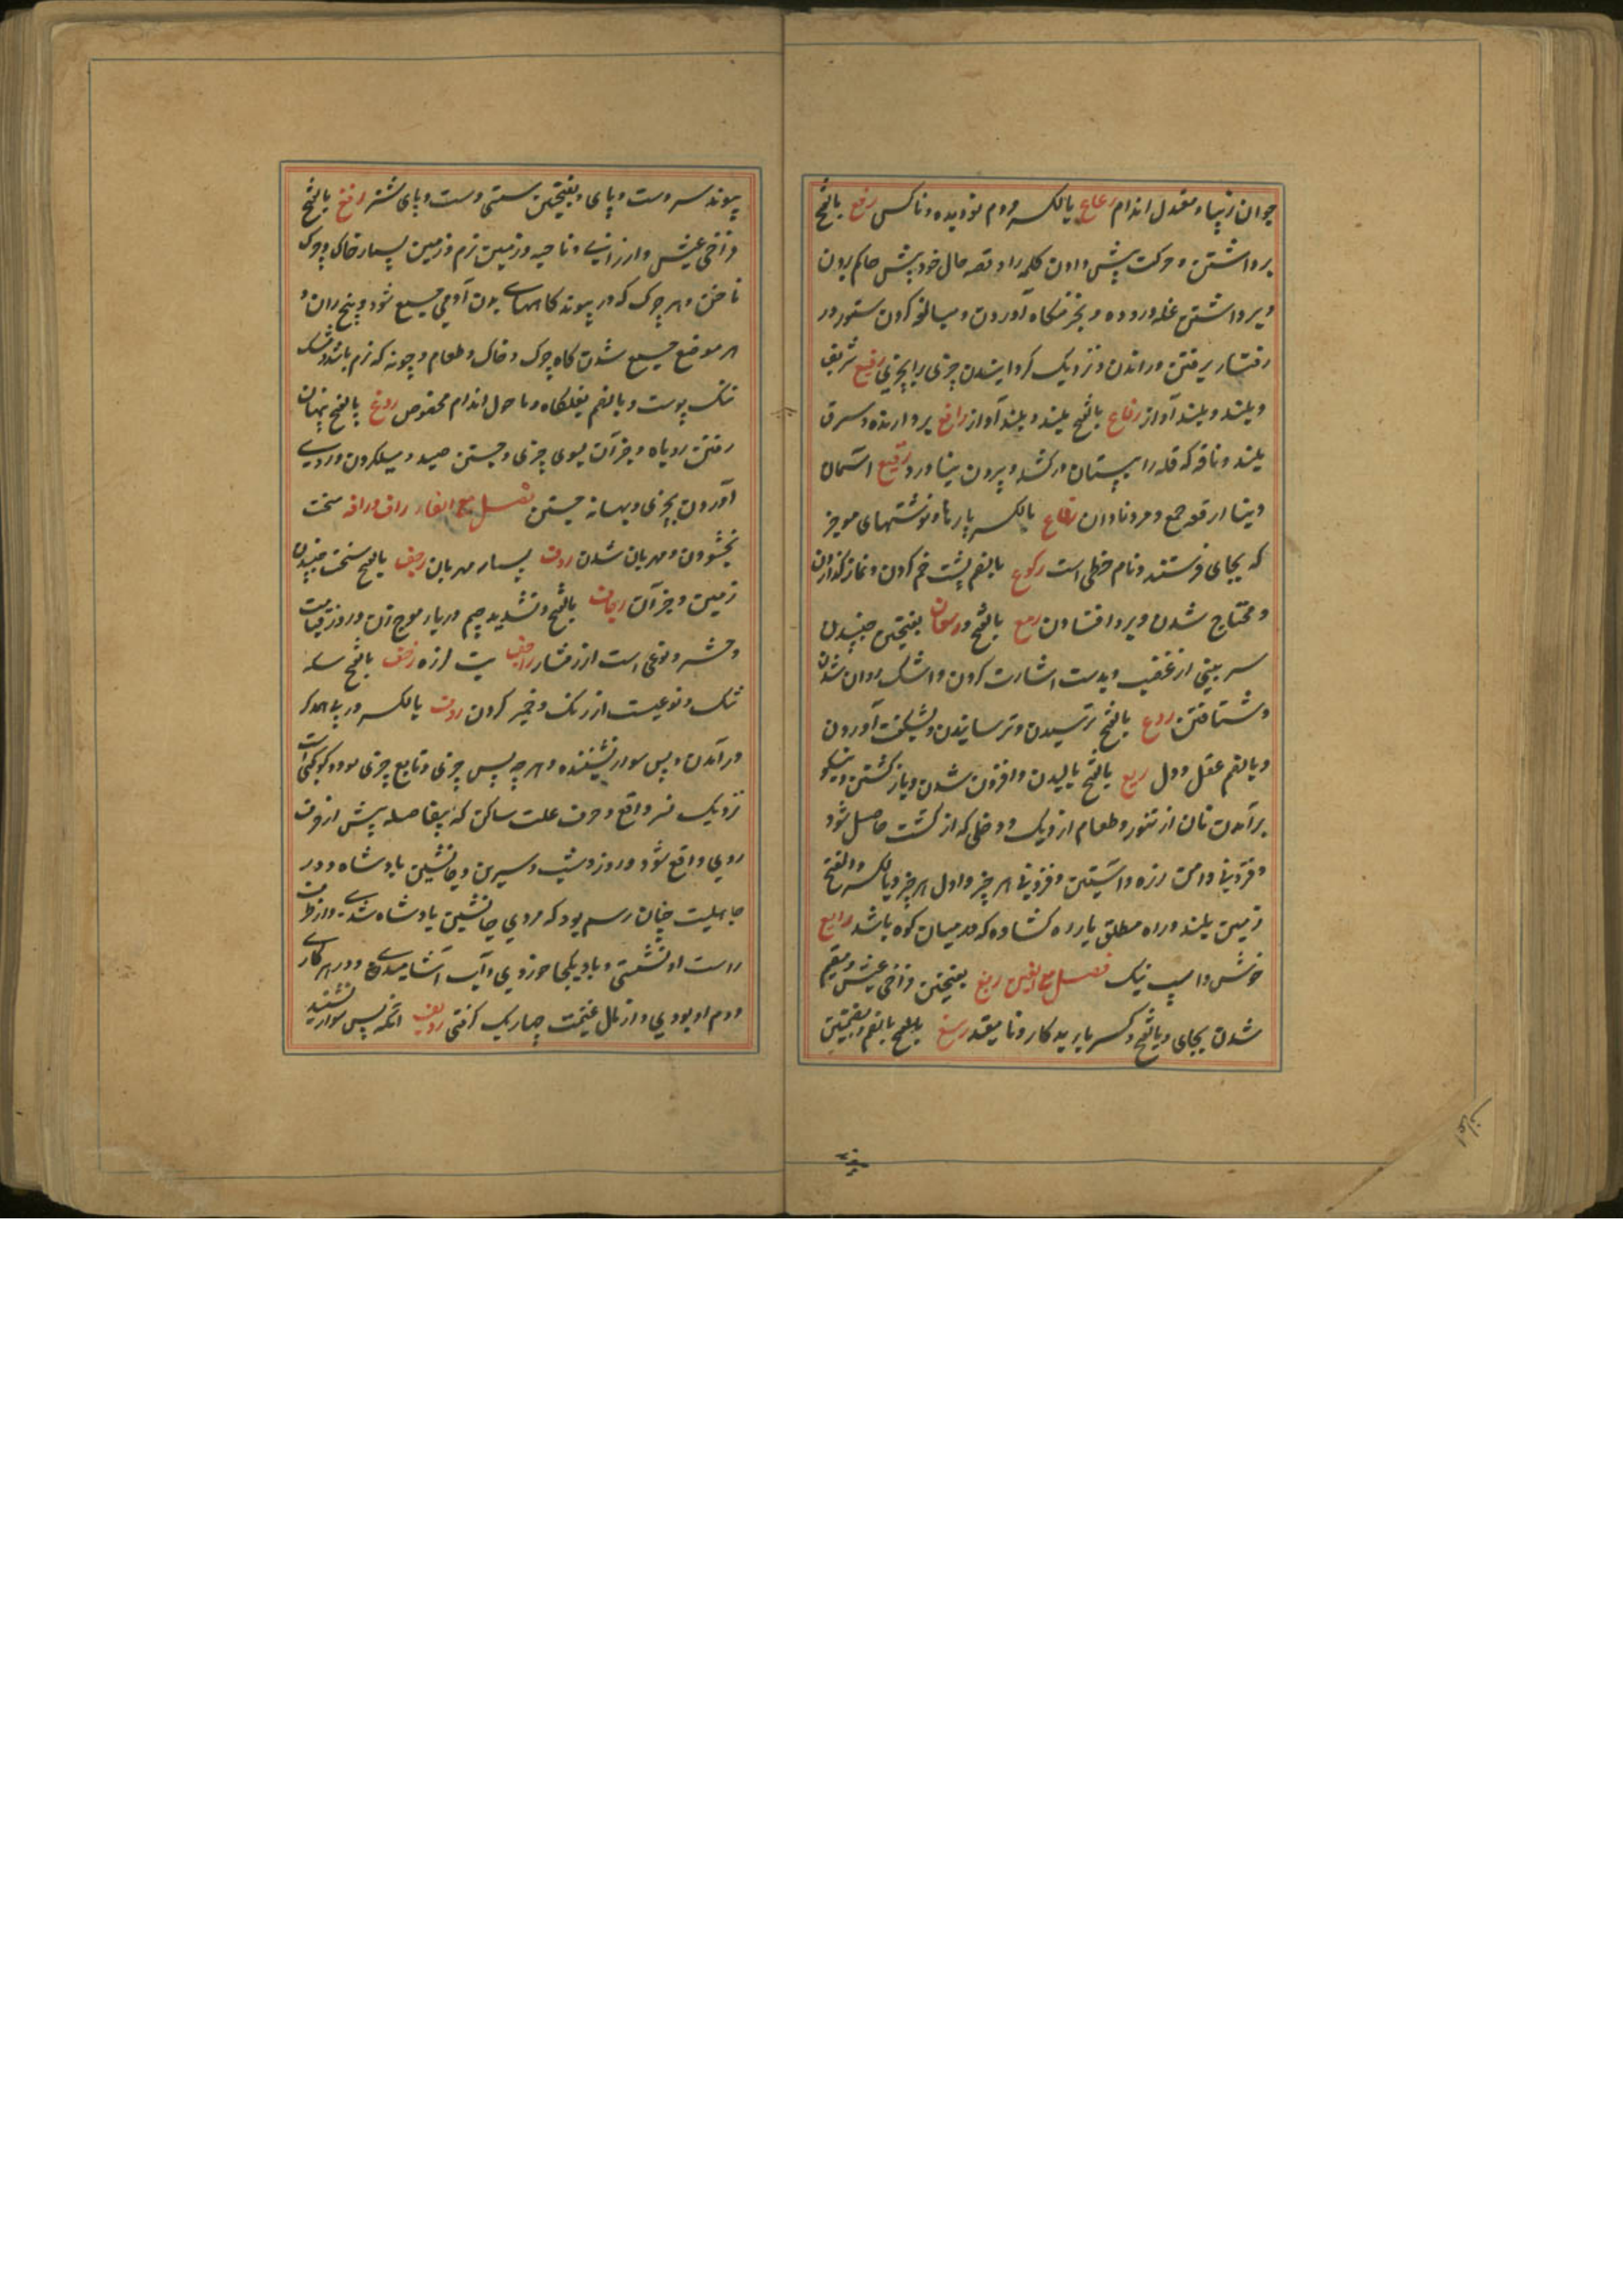 جوان زیبا و معتدل اندام رعاع بالکسر مردم نودیده و ناکس رفع بالفتح
برداشتن و حرکت پیش دادن کلمه را و قصه حال خود پیش حاکم بردن
و برداشتن غله دروده و بخرمنگاه آوردن و مبالغه کردن ستور در
رفتار برفتن و راندن و نزدیک گردانیدن چیزی برا بچیزی رفیع شریف
و بلند و بلند آواز رفاع بالفتح بلند و بلند آواز رافع بردارنده و سرق
بلند و ناقه که فله را بپستان درکشد و بیرون نیاورد رقیع آسمان
دینا ارقعه جمع و مرد نادان رقاع بالکسر پارها و نوشتهای موجز
که بجای فرستند و نام خطی است رکوع بالضم پشت خم کردن و نماز گذاردن
و محتاج شدن و بر رو افتادن رمع بالفتح و رمعان بفتحتین جنبیدن
سر بینی از غضب و بدست اشارت کردن و اشک روان شدن
و شتافتن روع بالفتح ترسیدن و ترسانیدن و بشگفت آوردن
و بالضم عقل و دل ریع بالفتح بالیدن و افزون شدن و بازگشتن و نیکو
برآمدن نان از تنور و طعام از دیک و دخلی که از کشت حاصل شود
و فزونی دامن زره و آستین و فزونی هر چیز و اول هر چیز و بالکسر والفتح
زمین بلند و راه مطلق یا راه گشاده که در میان کوه باشد رایع
خوش و اسپ نیک فصل مع الغین ربغ بفتحتین فراخی عیش و مقیم
شدن بجای و بالفتح و کسر با بدکار و نا مقید رسغ بالضم و بضمتین
پیوند
پیوند سر دست و پای و بفتحتین سستی دست و پای شتر رفغ بالفتح
فراخی عیش و ارزانی و ناحیه و زمین نرم و زمین بسیار خاک و چرک
ناخن و هر چرک که در پیوند گاههای بدن آدمی جمع شود و بیخ ران و
هر موضع جمع شدن گاه چرک و خاک و طعام و چونه که نرم باشد و مشک
تنک پوست و بالضم بغلگاه و ماحول اندام مخصوص روغ بالفتح پنهان
رفتن روباه و جز آن بسوی چیزی و جستن صید و میلکردن و روی
آوردن بچیزی و بهانه جستن فصل مع الفاء راف و رافه سخت
بخشودن و مهربان شدن روف بسیار مهربان رجف بالفتح سخت جنبیدن
زمین و جز آن رجاف بالفتح و تشدید جیم دریا و موج آن و روز قیامت
و حشر و نوعی است از رفتار راجف تب لرزه رخف بالفتح مسکه
تنک و نوعیست از رنک و خمیر کردن ردف بالکسر در پی همدگر
درآمدن و پس سوار نشیننده و هر چه پس چیزی و تابع چیزی بود و کوکبی است
نزدیک نسر واقع و حرف علت ساکن که بیفاصله پیش از حرف
روی واقع شود و روز و شب و سرین و جانشین پادشاه و در
جاهلیت چنان رسم بود که مردی جانشین پادشاه شدی و از طرف
راست او نشستی و با او یکجا خوردی و آب آشامیدی و در هر کار
ودم او بودی و از مال غنیمت چهاریک گرفتی ردیف آنکه پس سوار نشیند